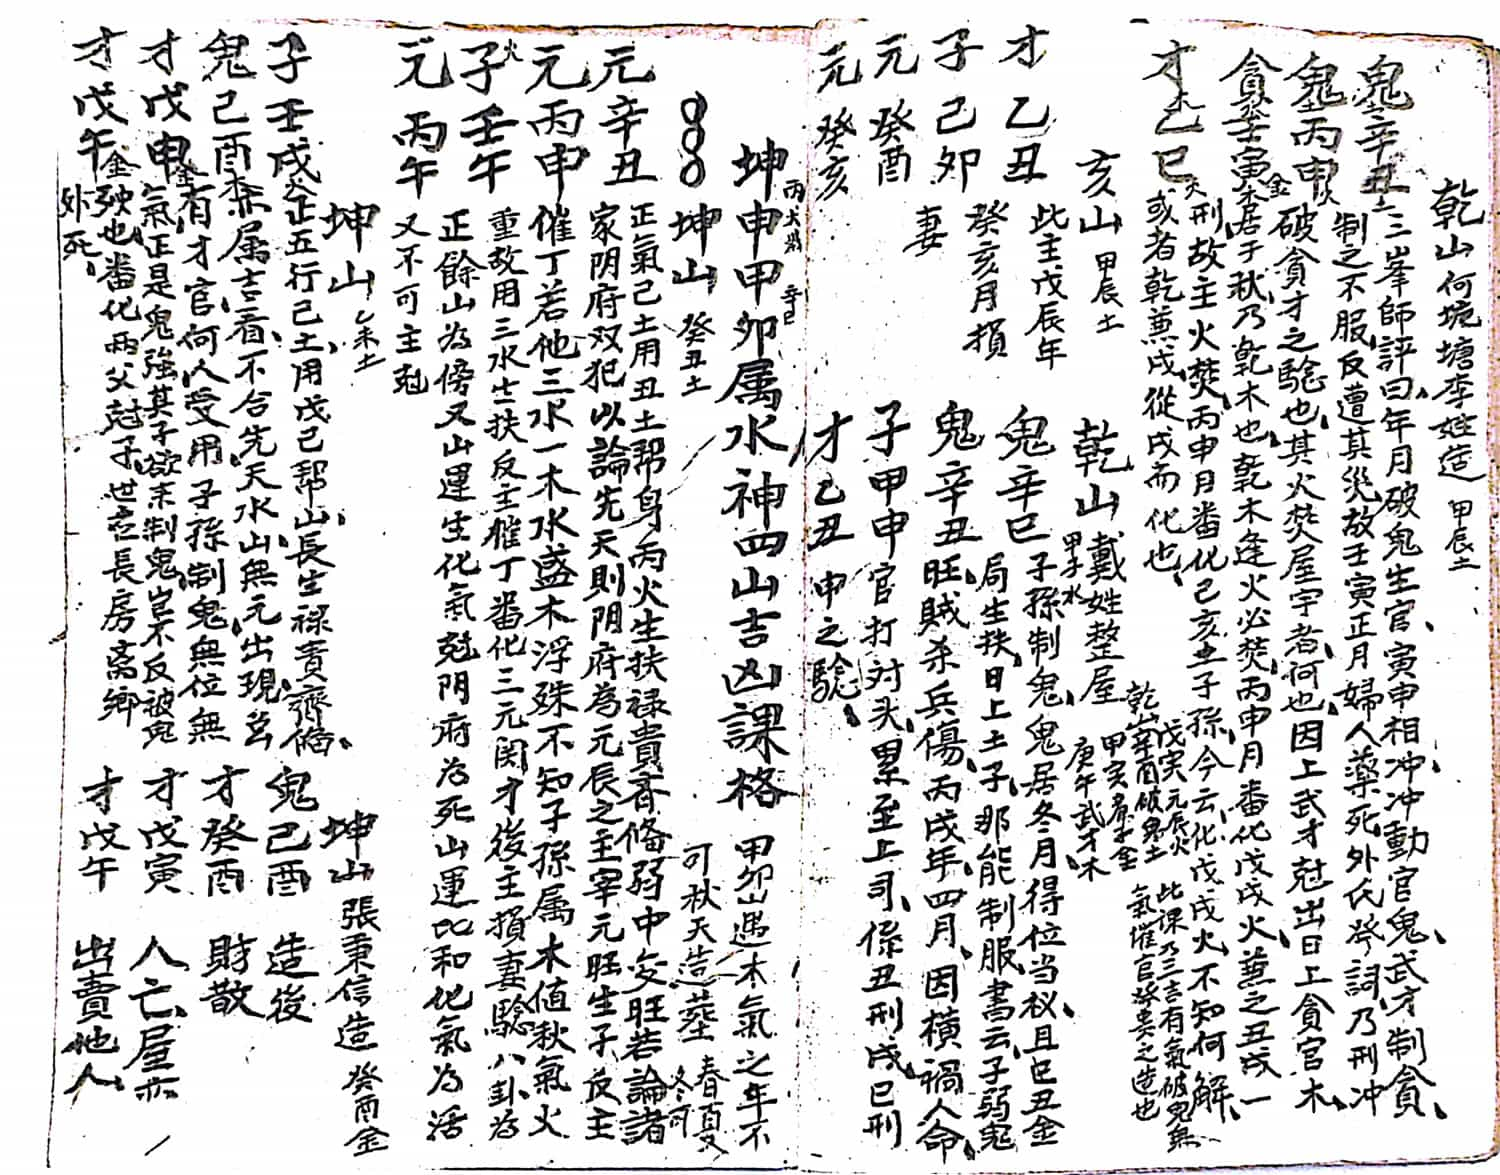 乾山何境塘李姓造 甲辰土
鬼辛丑土三峯師評曰年月破鬼生官寅申相冲冲動官鬼武才制貪
鬼丙申火制之不服反遭其災故壬寅正月婦人藥死外氏發詞乃刑冲
貪壬寅金破貪才之騐也其火焚屋宇者何也因上武才尅出日上貪官木
木居于秋乃乾木也乾木逢火必焚丙申月番化戊戌火兼之丑戌一
才乙巳火刑故主火焚丙申月番化己亥土子孫今云化戊戌火不知何解
或者乾兼戌從戌而化也
亥山 甲辰土
才乙丑 此主戊辰年
子己卯 癸亥月損
元癸酉 妻
元癸亥
乾山戴姓整屋 甲子水
乾山辛酉破鬼土
戊寅元辰火
甲寅廉子金
庚午武才木
此課乃三吉有氣破鬼無
氣催官發貴之造也
鬼辛巳子孫制鬼鬼居冬月得位当权且巳丑金
局生扶日上土子那能制服書云子弱鬼
鬼辛丑旺賊杀兵傷丙戌年四月因橫禍人命
子甲申官打対头累至上司係丑刑戌巳刑
才乙丑申之騐
坤申甲卯属水神四山吉凶課格 甲卯山遇木氣之年不
丙火鼎 辛巳
可秋天造葬 春夏冬可
坤山 癸丑土
元辛丑正氣己土用丑土帮身丙火生扶禄貴齐俻弱中变旺若論諸
家阴府双犯以論先天則阴府為元辰之主宰元旺生子反主
元丙申催丁若他三水一木水盛木浮殊不知子孫属木值秋氣火
子壬午火重故用三水生扶反主催丁番化三元関才後主損妻騐八卦為
正餘山為傍又山運生化氣尅阴府为死山運比和化氣为活
元丙午又不可主尅
坤山 乙未土
子壬戌火正五行己土用戊己帮山長生禄貴齊俻
鬼己酉木柰属吉看不合先天水山無元出現名
才戊申金有才官何人受用子孫制鬼無位無
氣正是鬼強其子欲來制鬼豈不反被鬼
才戊午金殃也番化兩父尅子世言長房离鄉
外死
坤山張秉信造 癸酉金
鬼己酉 造後
才癸酉 財散
才戊寅 人亡屋亦
才戊午 出賣他人